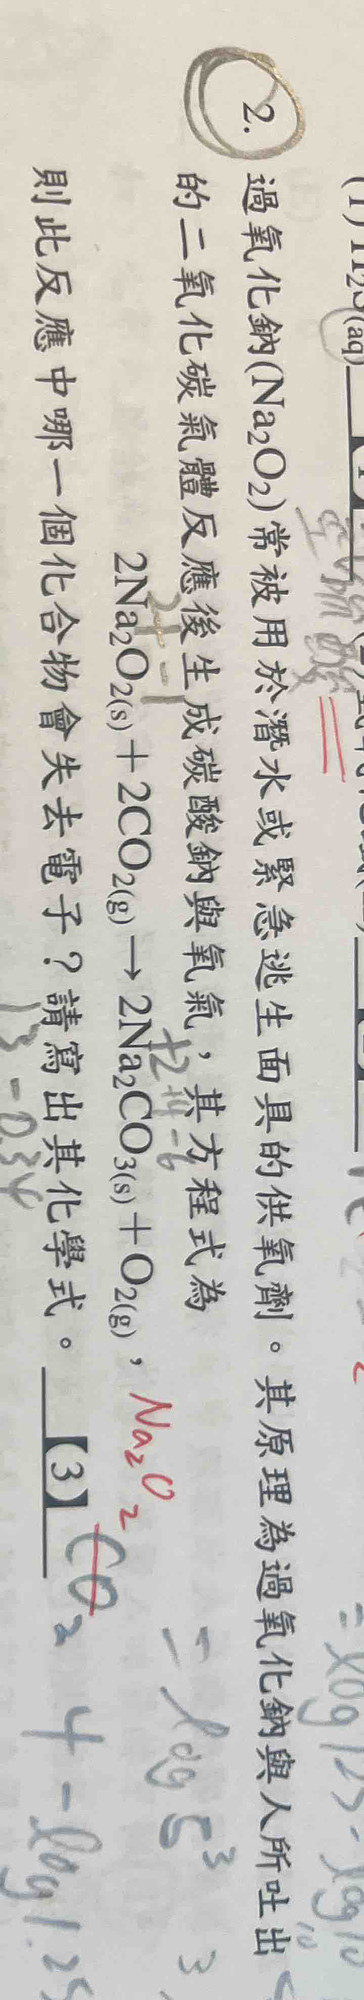 (1) H₂S(aq)
2. 過氧化鈉(Na₂O₂)常被用於潛水或緊急逃生面具的供氧劑。其原理為過氧化鈉與人所吐出
的二氧化碳氣體反應後生成碳酸鈉與氧氣，其方程式為
2Na₂O₂(s)＋2CO₂(g)→2Na₂CO₃(s)＋O₂(g)，
則此反應中哪一個化合物會失去電子？請寫出其化學式。 【3】
Na₂O₂
CO₂
+2 +4 -6
= log 5³
4 - log 1.25